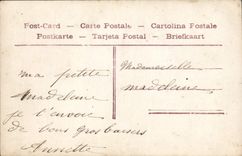 Post-Card — Carte Postale — Cartolina Postale
Postkarte — Tarjeta Postal — Briefkaart
ma petite
Madeleine
je t'envoie
de bons gros baisers
Annette
Mademoiselle
Madeleine